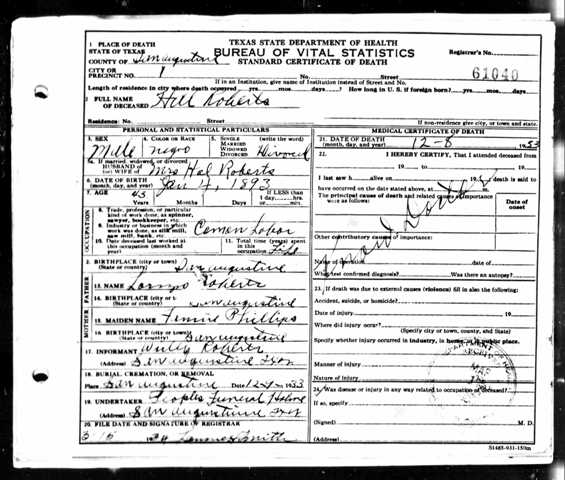 TEXAS STATE DEPARTMENT OF HEALTH
BUREAU OF VITAL STATISTICS
STANDARD CERTIFICATE OF DEATH
1 PLACE OF DEATH
STATE OF TEXAS
COUNTY OF San Augustine
CITY OR
PRECINCT NO. 1
Registrar's No.
No. Street
61040
If in an Institution, give name of Institution instead of Street and No.
Length of residence in city where death occurred? yrs. mos. days. How long in U. S. if foreign born? yrs. mos. days
2 FULL NAME
OF DECEASED Roberts
Residence: No. Street
If non-residence give city, or town and state.
PERSONAL AND STATISTICAL PARTICULARS
3. SEX
Male
4. COLOR OR RACE
negro
5. SINGLE
MARRIED
WIDOWED
DIVORCED
(write the word)
5a. If married, widowed, or divorced
HUSBAND OF
(or) WIFE OF Mrs Roberts
6. DATE OF BIRTH
(month, day, and year) Jan 4, 1893
7. AGE 43
Years Months Days
If LESS than
1 day hrs.
or min.
OCCUPATION
8. Trade, profession, or particular
kind of work done, as spinner,
sawyer, bookkeeper, etc.
9. Industry or business in which
work was done, as silk mill,
saw mill, bank, etc. Comon Labor
10. Date deceased last worked at
this occupation (month and
year)
11. Total time (years) spent
in this
occupation
12. BIRTHPLACE (city or town)
(State or country) San Augustine
FATHER
13. NAME Roberts
14. BIRTHPLACE (city or town)
(State or country) San Augustine
MOTHER
15. MAIDEN NAME Phillips
16. BIRTHPLACE (city or town)
(State or country) San Augustine
17. INFORMANT Roberts
(Address) San Augustine Tex
18. BURIAL, CREMATION, OR REMOVAL
Place San Augustine Date 1933
19. UNDERTAKER Peoples Funeral Home
(Address) San Augustine Tex
20. FILE DATE AND SIGNATURE OF REGISTRAR
Smith
MEDICAL CERTIFICATE OF DEATH
21. DATE OF DEATH
(month, day, and year) 12-8 1933
22. I HEREBY CERTIFY, That I attended deceased from
19 to 19
I last saw h alive on 19 death is said to
have occurred on the date stated above, at m.
The principal cause of death and related causes of importance
were as follows:
Date of
onset
Other contributary causes of importance:
Name of operation date of
What test confirmed diagnosis? Was there an autopsy?
23. If death was due to external causes (violence) fill in also the following:
Accident, suicide, or homicide?
Date of injury 19
Where did injury occur?
(Specify city or town, county, and State)
Specify whether injury occurred in industry, in home, or in public place.
Manner of injury
Nature of injury
24. Was disease or injury in any way related to occupation of deceased?
If so, specify
(Signed) M. D.
(Address)
S1465-931-150m